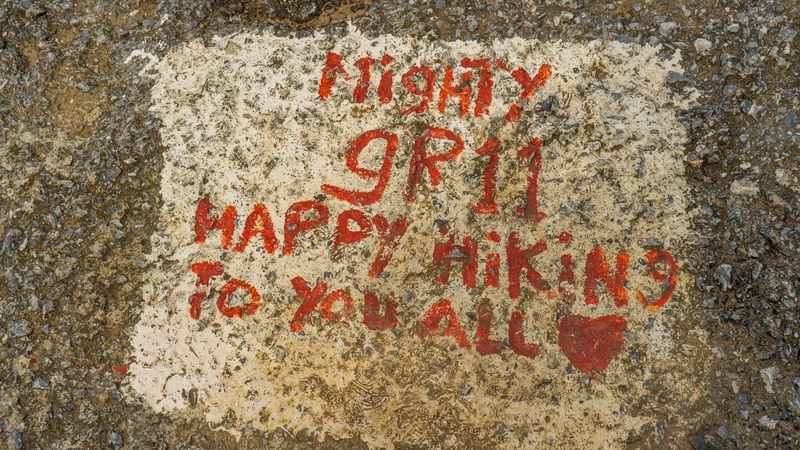 MigHTY
gR11
HAPPY HiKiNg
To YoU ALL